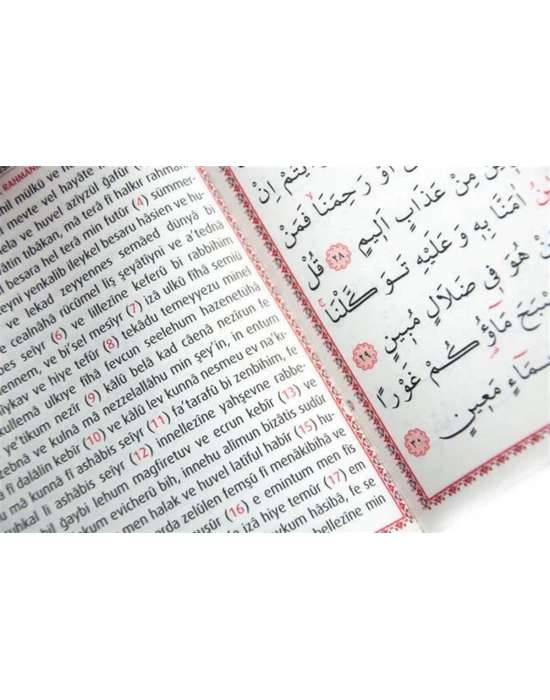 RAHMAN
mülkü ve
meyte vel hayâte
ve huvel azîyzül gafûr (2)
tıbâkan, mâ terâ fî halkır rahmân
besara hel terâ min futûr (4) sümmer-
yenkalib ileykel besaru hâsien ve hu-
ve lekad zeyyennes semâed dünyâ bi
ve cealnâhâ rücûmel liş şeyâtîyni ve a'tednâ
seiyr (6) ve lillezîne keferû bi rabbihim
ennem, ve bi'sel mesîyr (7) izâ ulkû fîhâ semiû
ve hiye tefûr (8) tekâdu temeyyezu minel
kullemâ ulkıye fîhâ fevcun seelehum hazenetühâ
e'tikum nezîr (9) kâlû belâ kad câenâ nezîrun fe
zebnâ ve kulnâ mâ nezzelallâhu min şey'in, in entum
fî dalâlin kebîr (10) ve kâlû lev kunnâ nesmeu ev na'kı-
mâ kunnâ fî ashâbis seiyr (11) fa'tarafû bi zenbihim, fe
uhkal li ashâbis seiyr (12) innellezîne yahşevne rabbe-
bil ğaybi lehum mağfiretuv ve ecrun kebîr (13) ve
kum evicherû bih, innehu alîmun bizâtis sudûr
men halak ve huvel latîful habîr (15) hu-
arda zelûlen femşû fî menâkibihâ ve
nuşûr (16) e emintum men fis
izâ hiye temûr (17) em
aykum hâsibâ, fe se
bellezîne min
اَوْ رَحِمَنَا فَمَنْ
مِنْ عَذَابٍ اَلِيمٍ ٢٨ قُلْ
اٰمَنَّا بِهِ وَ عَلَيْهِ تَوَكَّلْنَا
هُوَ فِى ضَلَالٍ مُبِينٍ ٢٩
مَاؤُكُمْ غَوْرًا
مَعِينٍ ٣٠